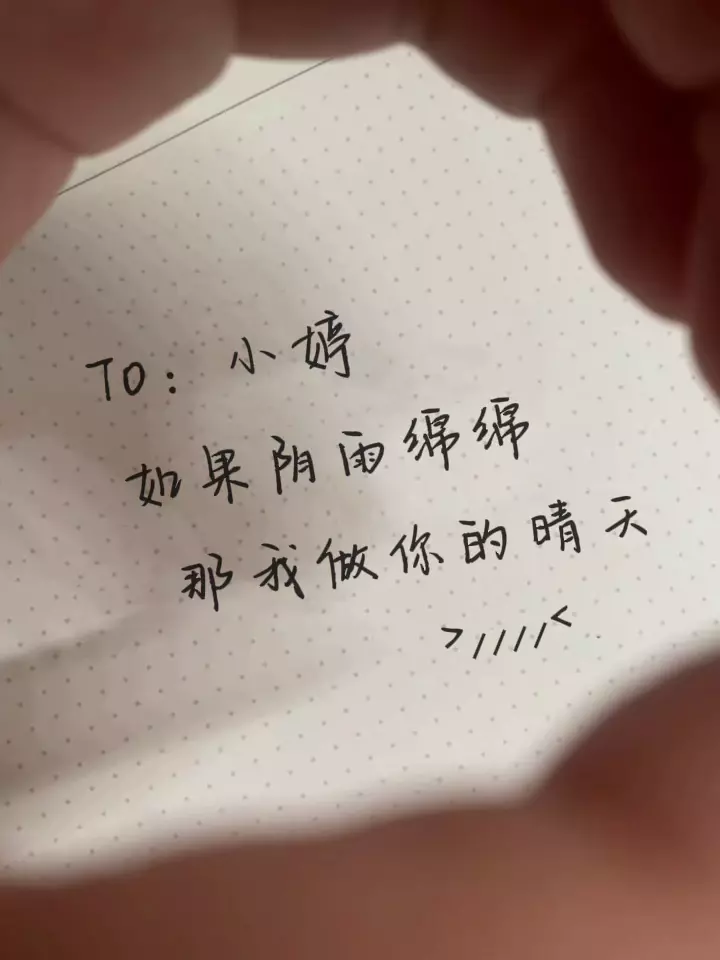 TO: 小婷
如果阴雨绵绵
那我做你的晴天
>////<